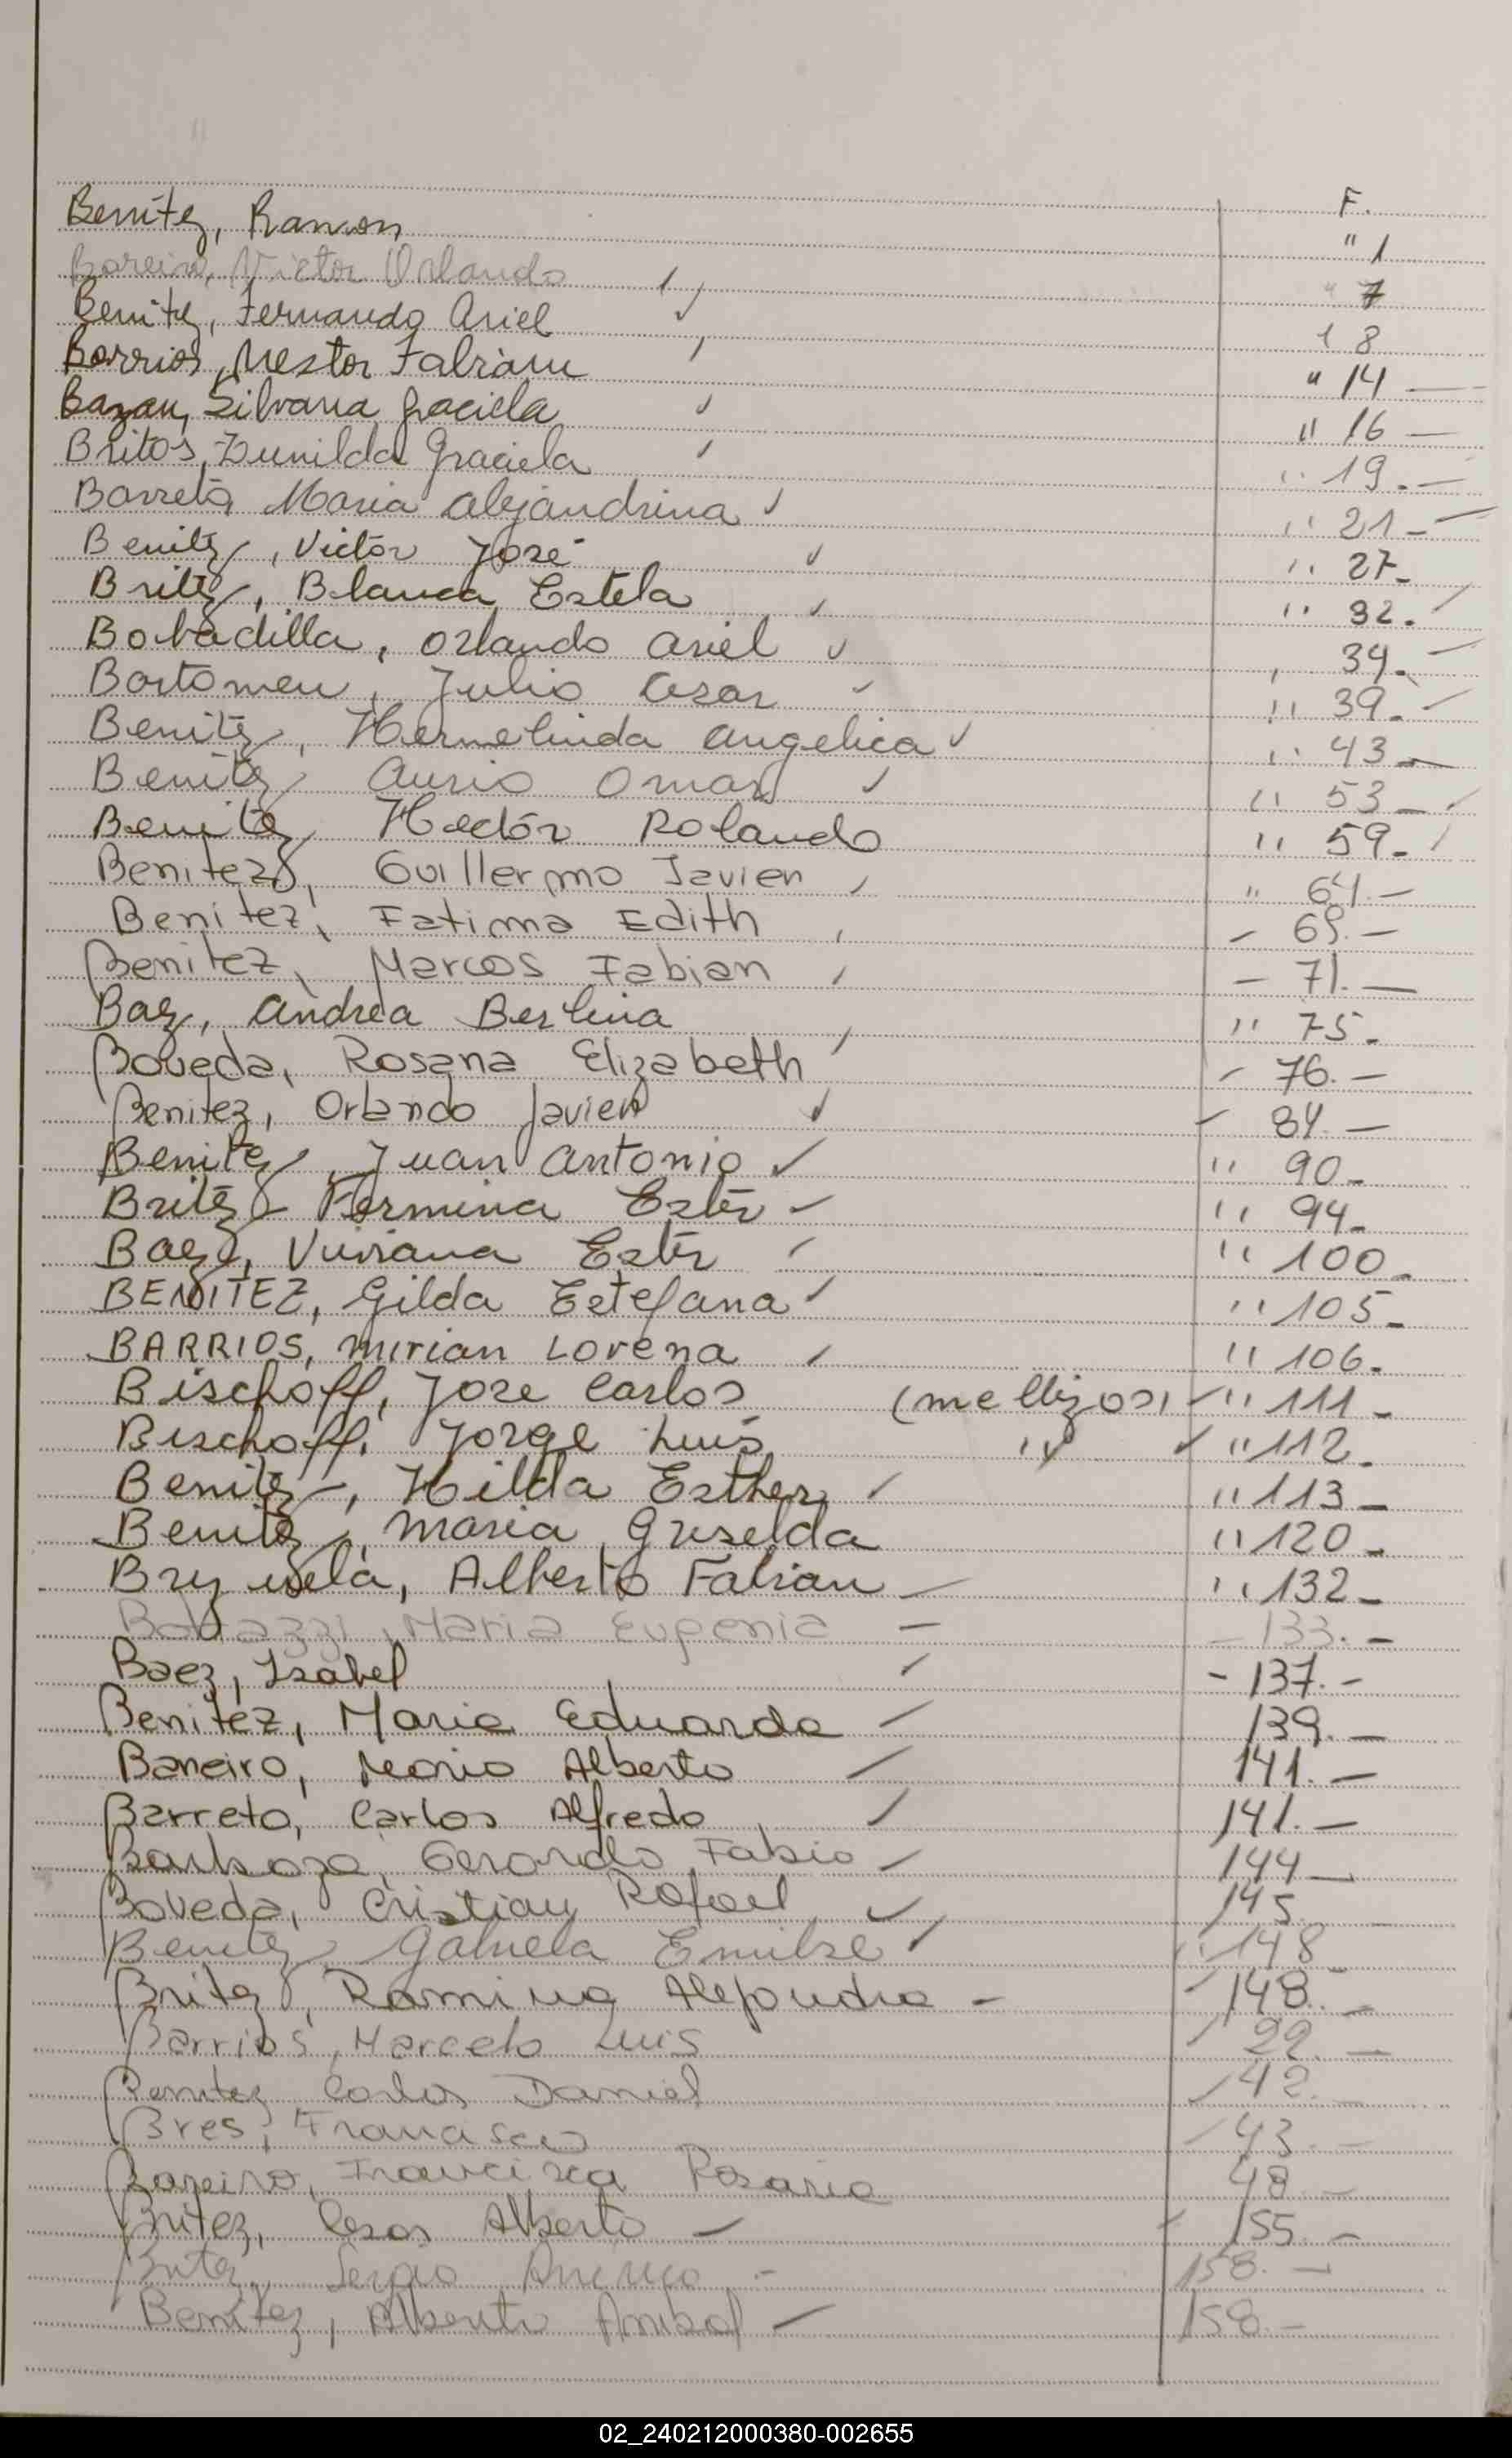 F.
Benítez, Ramon " 1
Bareiro, Victor Orlando " 7
Benitez, Fernando Ariel 8
Barrios, Nestor Fabian " 14
Bazan, Silvana Graciela " 16
Britos, Dunilda Graciela " 19.-
Barreto, Maria Alejandrina " 21-
Benitez, Victor José " 27-
Britez, Blanca Estela " 32.
Bobadilla, Orlando Ariel 34.-
Bartomeu, Julio Cesar " 39.-
Benitez, Hermelinda Angelica " 43-
Benitez, Omar " 53-
Benitez, Hector Rolando " 59-
Benitez, Guillermo Javier " 64.-
Benitez, Fatima Edith - 69.-
Benitez, Marcos Fabian - 71.-
Baez, Andrea Berlina " 75-
Boveda, Rosana Elizabeth - 76.-
Benitez, Orlando Javier - 84.-
Benitez, Juan Antonio " 90-
Britez Fermina Ester " 94-
Baez, Viviana Ester " 100-
BENITEZ, Gilda Estefana " 105-
BARRIOS, Mirian Lorena " 106-
Bischoff, Jose Carlos (mellizos) " 111-
Bischoff, Jorge Luis " " 112-
Benitez, Hilda Esther " 113-
Benitez, Maria Griselda " 120-
Bryzuela, Alberto Fabian " 132-
Maria Eugenia - 133.-
Baez, Isabel - 137.-
Benitez, Maria Eduarda 139.-
Bareiro, Mario Alberto 141.-
Barreto, Carlos Alfredo 141.-
Barboza, Gerardo Fabio 144-
Boveda, Cristian Rafael 145
Benitez, Gabriela Emilse " 148-
Britez, Romina Alejandra 148.-
Barrios, Marcelo Luis 22.-
Benitez Carlos Daniel 42.-
Bres, Francisco 43.-
Bareiro, Francisca Rosaria 48.-
Britez, Cesar Alberto 155.-
Britez, Sergio Americo 158.-
Benitez, Alberto Anibal 158.-
02_240212000380-002655